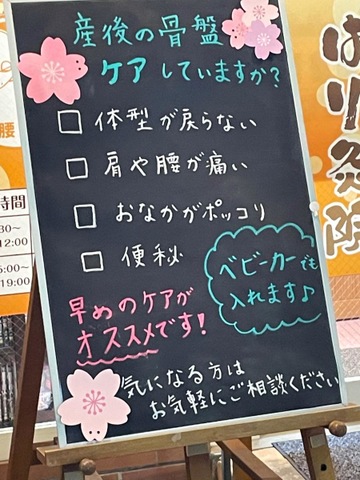 産後の骨盤
ケアしていますか?
□ 体型が戻らない
□ 肩や腰が痛い
□ おなかがポッコリ
□ 便秘
ベビーカーでも
入れます♪
早めのケアが
オススメです!
気になる方は
お気軽にご相談ください
はり灸院
腰
時間
12:00
19:00